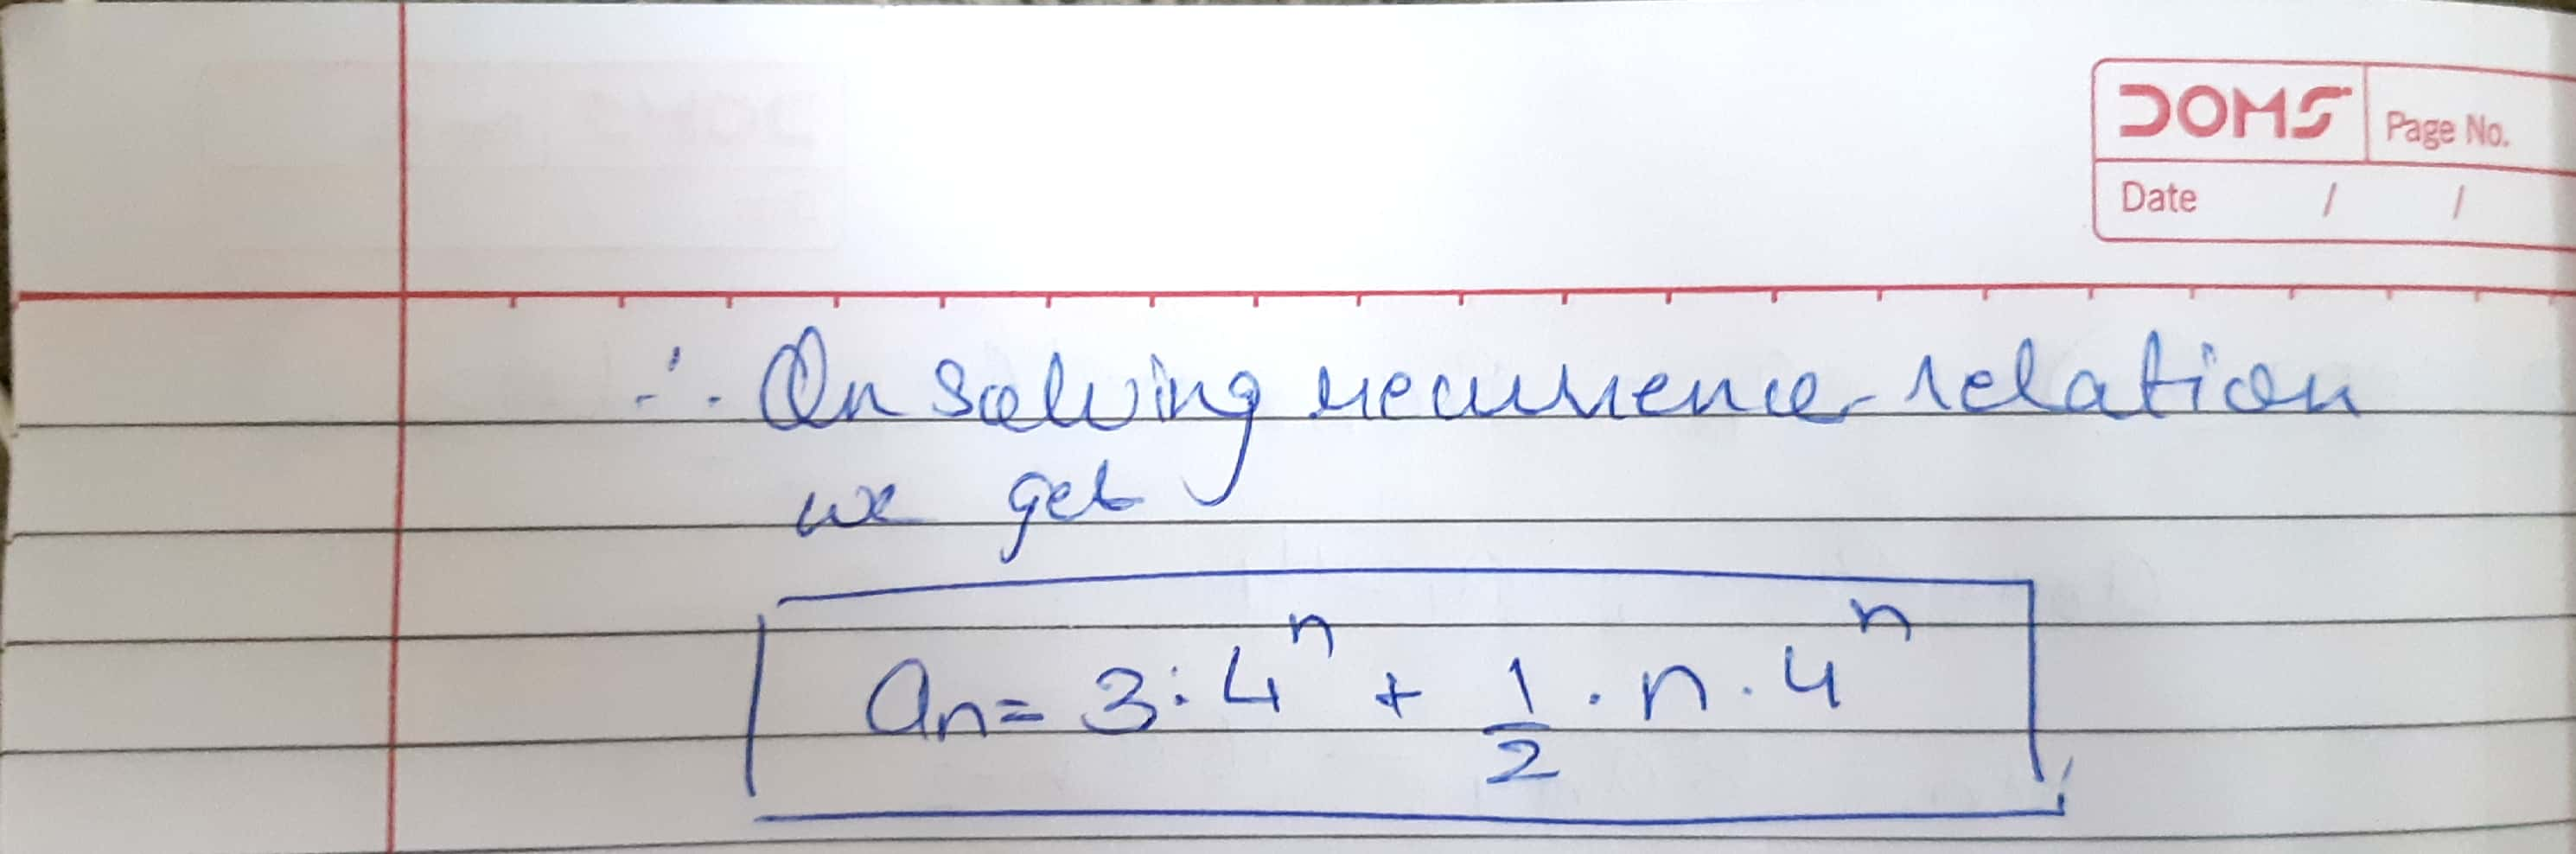 DOMS Page No.
Date / /
∴ On solving recurrence relation
we get
an = 3·4^n + 1/2 · n · 4^n